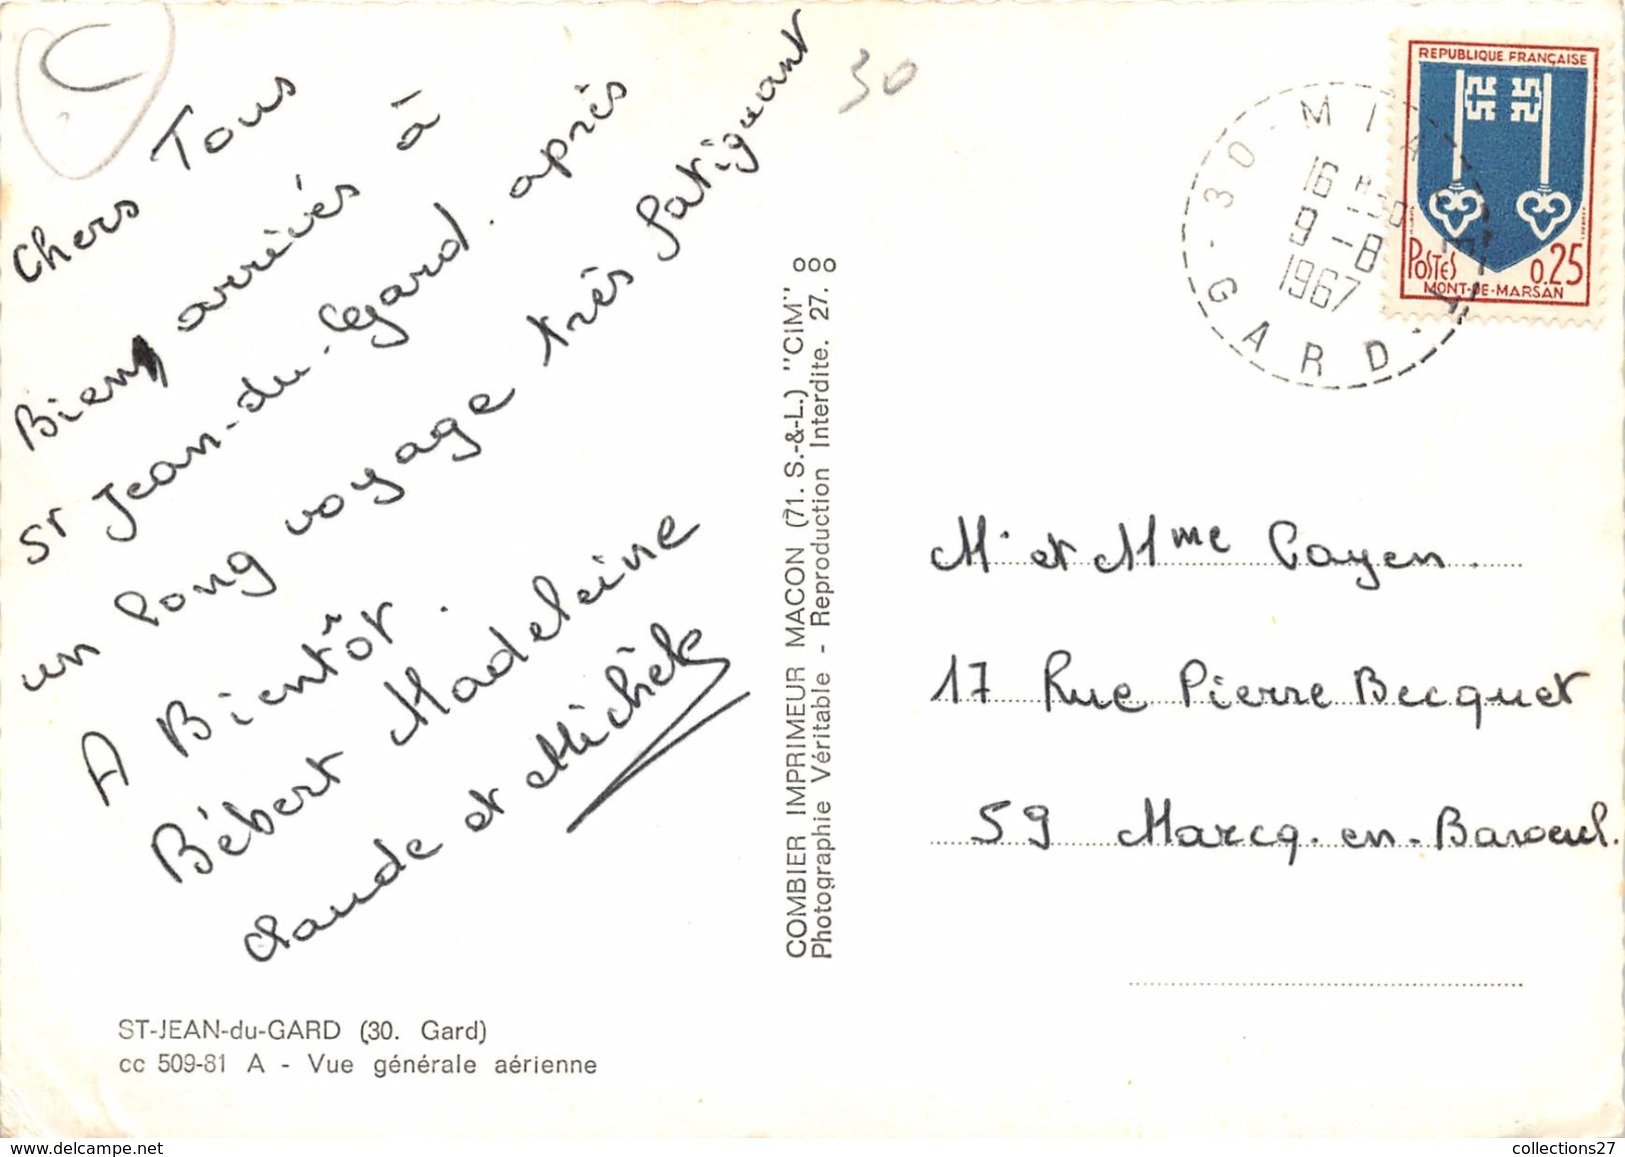 Chers Tous
Bien arrivés à
St Jean-du-Gard. après
un long voyage très fatiguant
A Bientôt.
Bébert Madeleine
Claude et Michèle
ST-JEAN-du-GARD (30. Gard)
cc 509-81 A - Vue générale aérienne
COMBIER IMPRIMEUR MACON (71. S.-&-L.) "CIM"
Photographie Véritable - Reproduction Interdite. 27. ooo
30
30 - MIALET
16 H 30
9 - 8
1967
GARD
REPUBLIQUE FRANÇAISE
POSTES 0.25
MONT-DE-MARSAN
Mr et Mme Cayen.
17 Rue Pierre Becquet
59 Marcq-en-Baroeul.
collections27